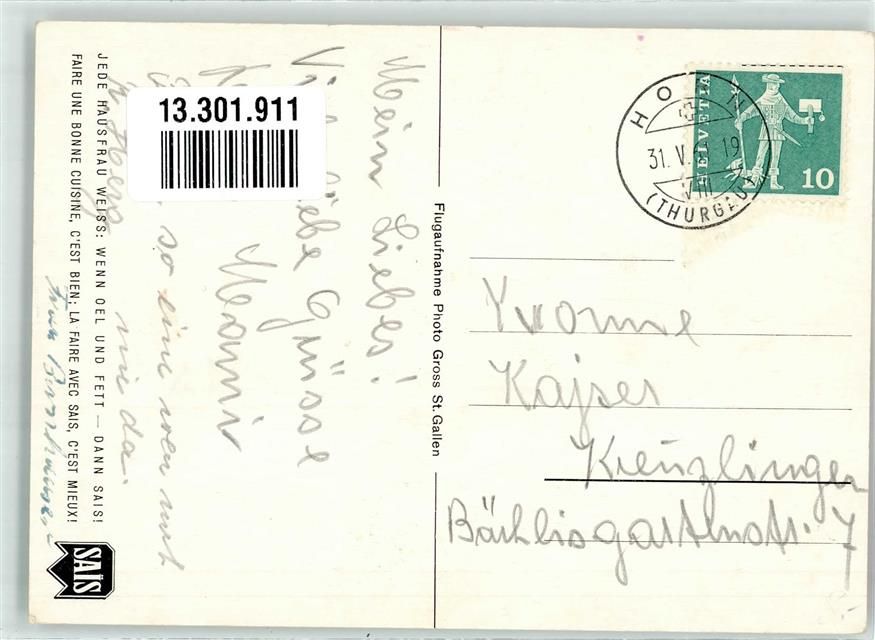 Mein Liebes!
Viele liebe Grüsse
Mami
so eine
mit
Herz nie da.
JEDE HAUSFRAU WEISS: WENN OEL UND FETT — DANN SAIS!
FAIRE UNE BONNE CUISINE, C'EST BIEN; LA FAIRE AVEC SAIS, C'EST MIEUX!
SAIS
13.301.911
Flugaufnahme Photo Gross St. Gallen
HELVETIA
10
HORN
31. V. 61. 19
VIII
(THURGAU)
Yvonne
Kajser
Kreuzlingen
Bächlisgartenstr. 7